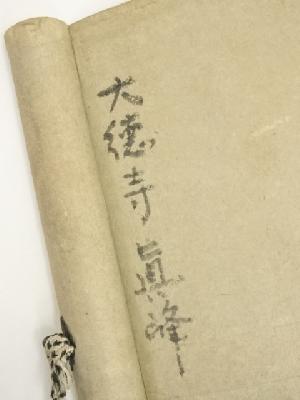 大徳寺 眞峰